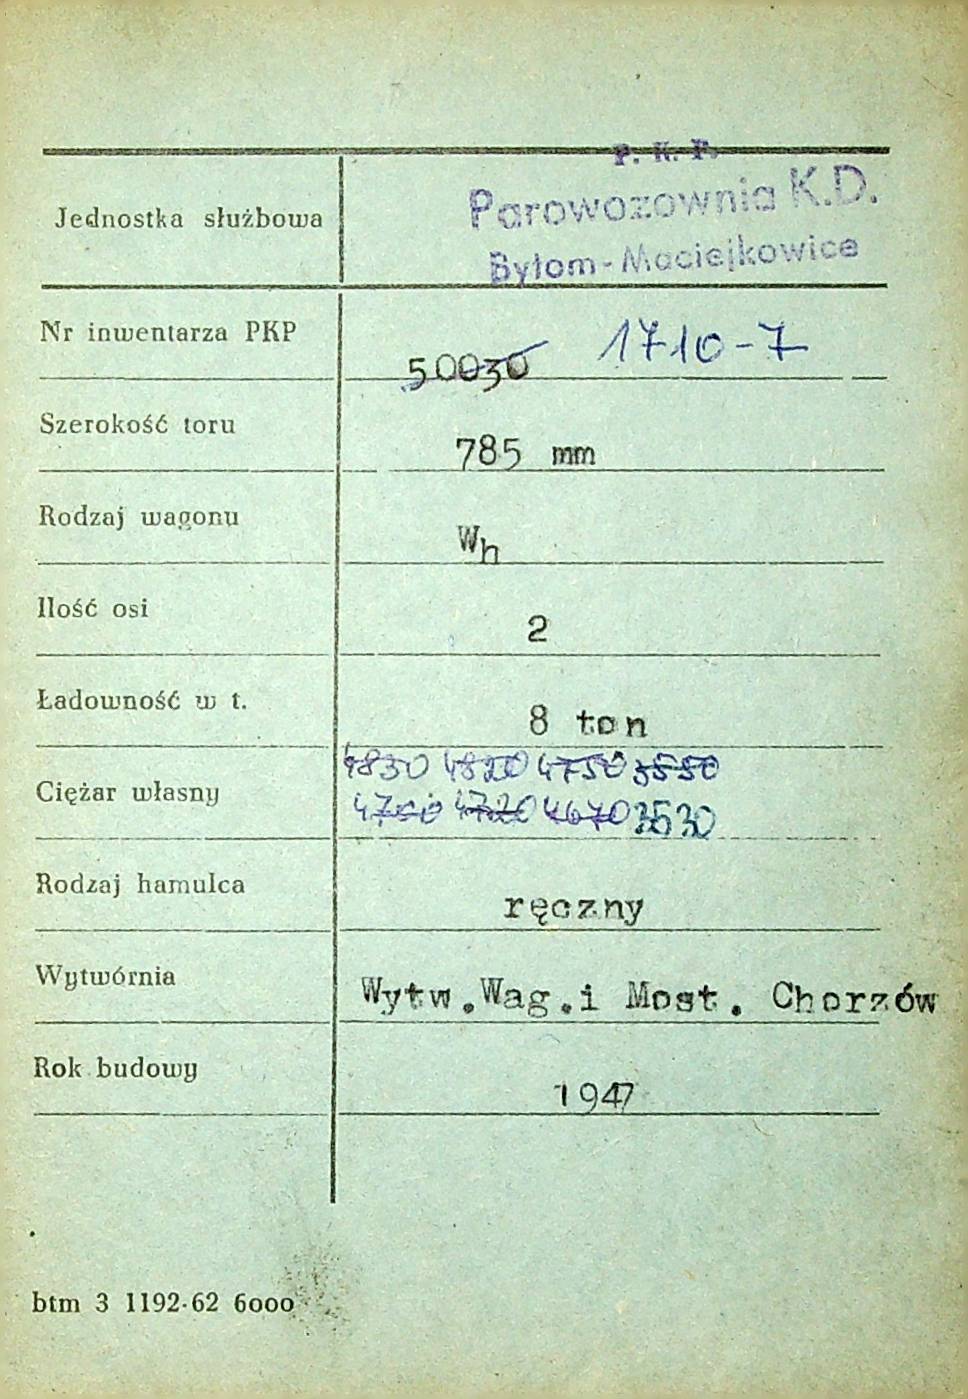 P. K. P.
Parowozownia K.D.
Jednostka służbowa
Bytom-Maciejkowice
Nr inwentarza PKP
50030 1710-7
Szerokość toru
785 mm
Rodzaj wagonu
Wh
Ilość osi
2
Ładowność w t.
8 ton
4830 4820 4750 3550
Ciężar własny
4700 4720 4670 3530
Rodzaj hamulca
ręczny
Wytwórnia
Wytw.Wag.i Most. Chorzów
Rok budowy
1947
btm 3 1192-62 6000